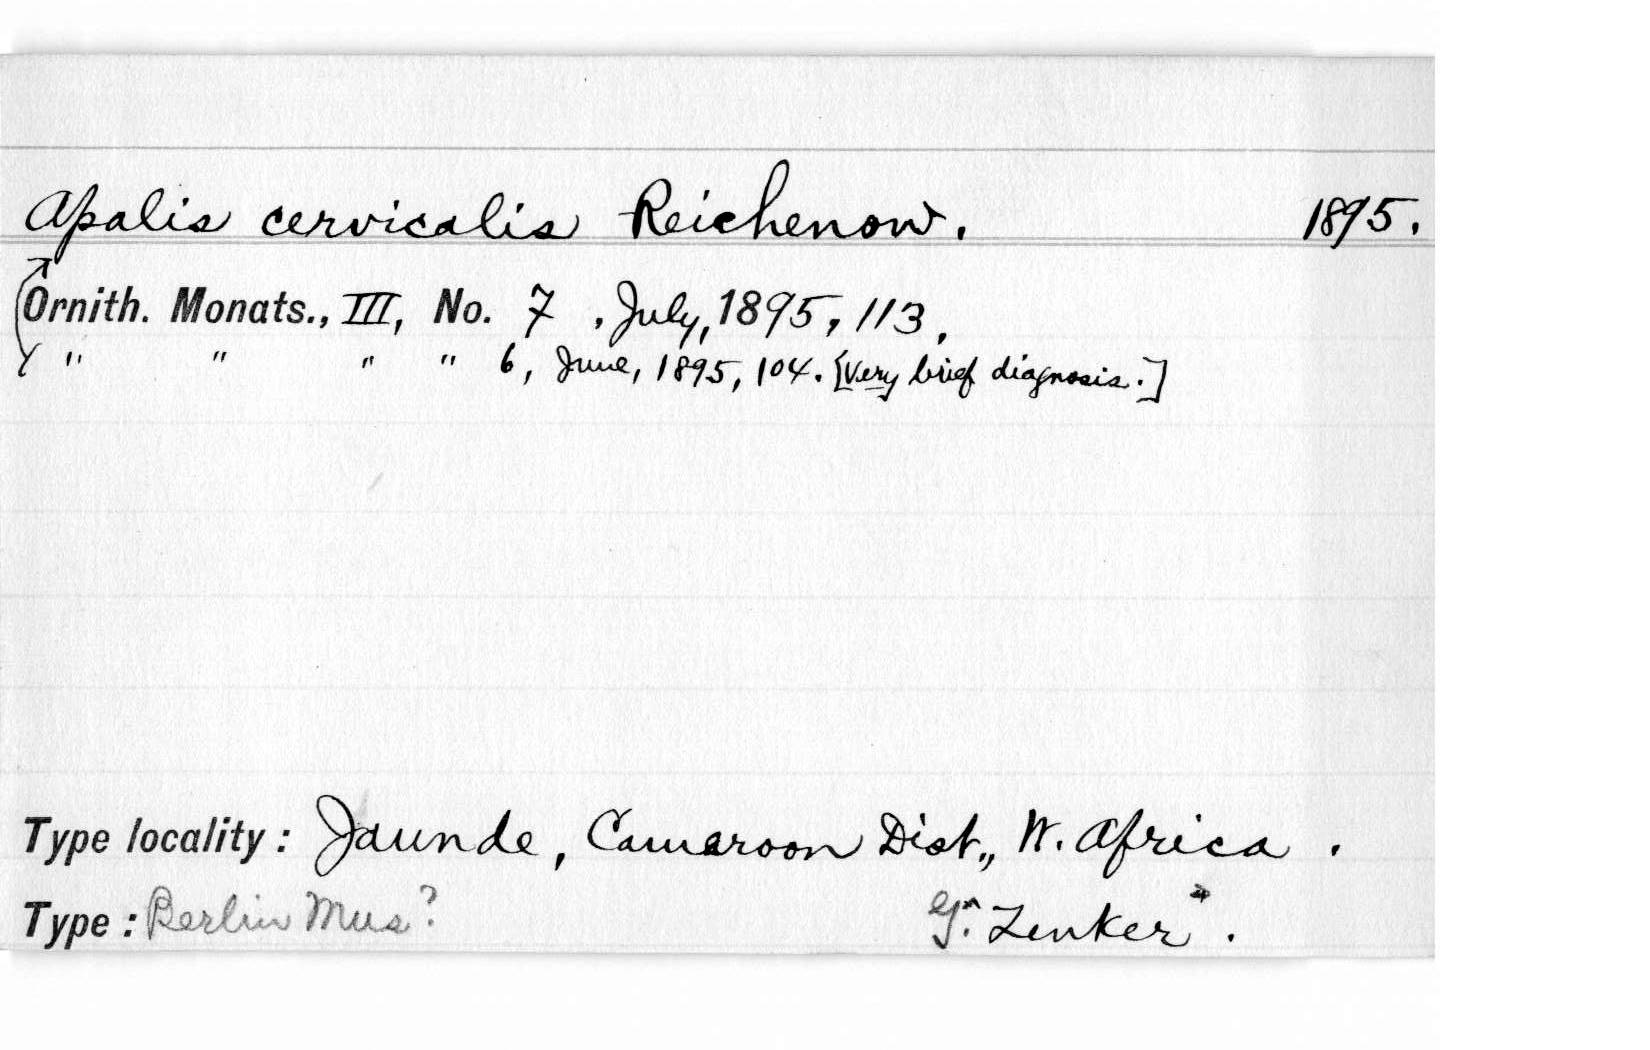 Apalis cervicalis Reichenow. 1895.
Ornith. Monats., III, No. 7, July, 1895, 113,
" " " " 6, June, 1895, 104. [Very brief diagnosis.]
Type locality: Jaunde, Cameroon Dist., W. Africa.
Type: Berlin Mus? G. Zenker".